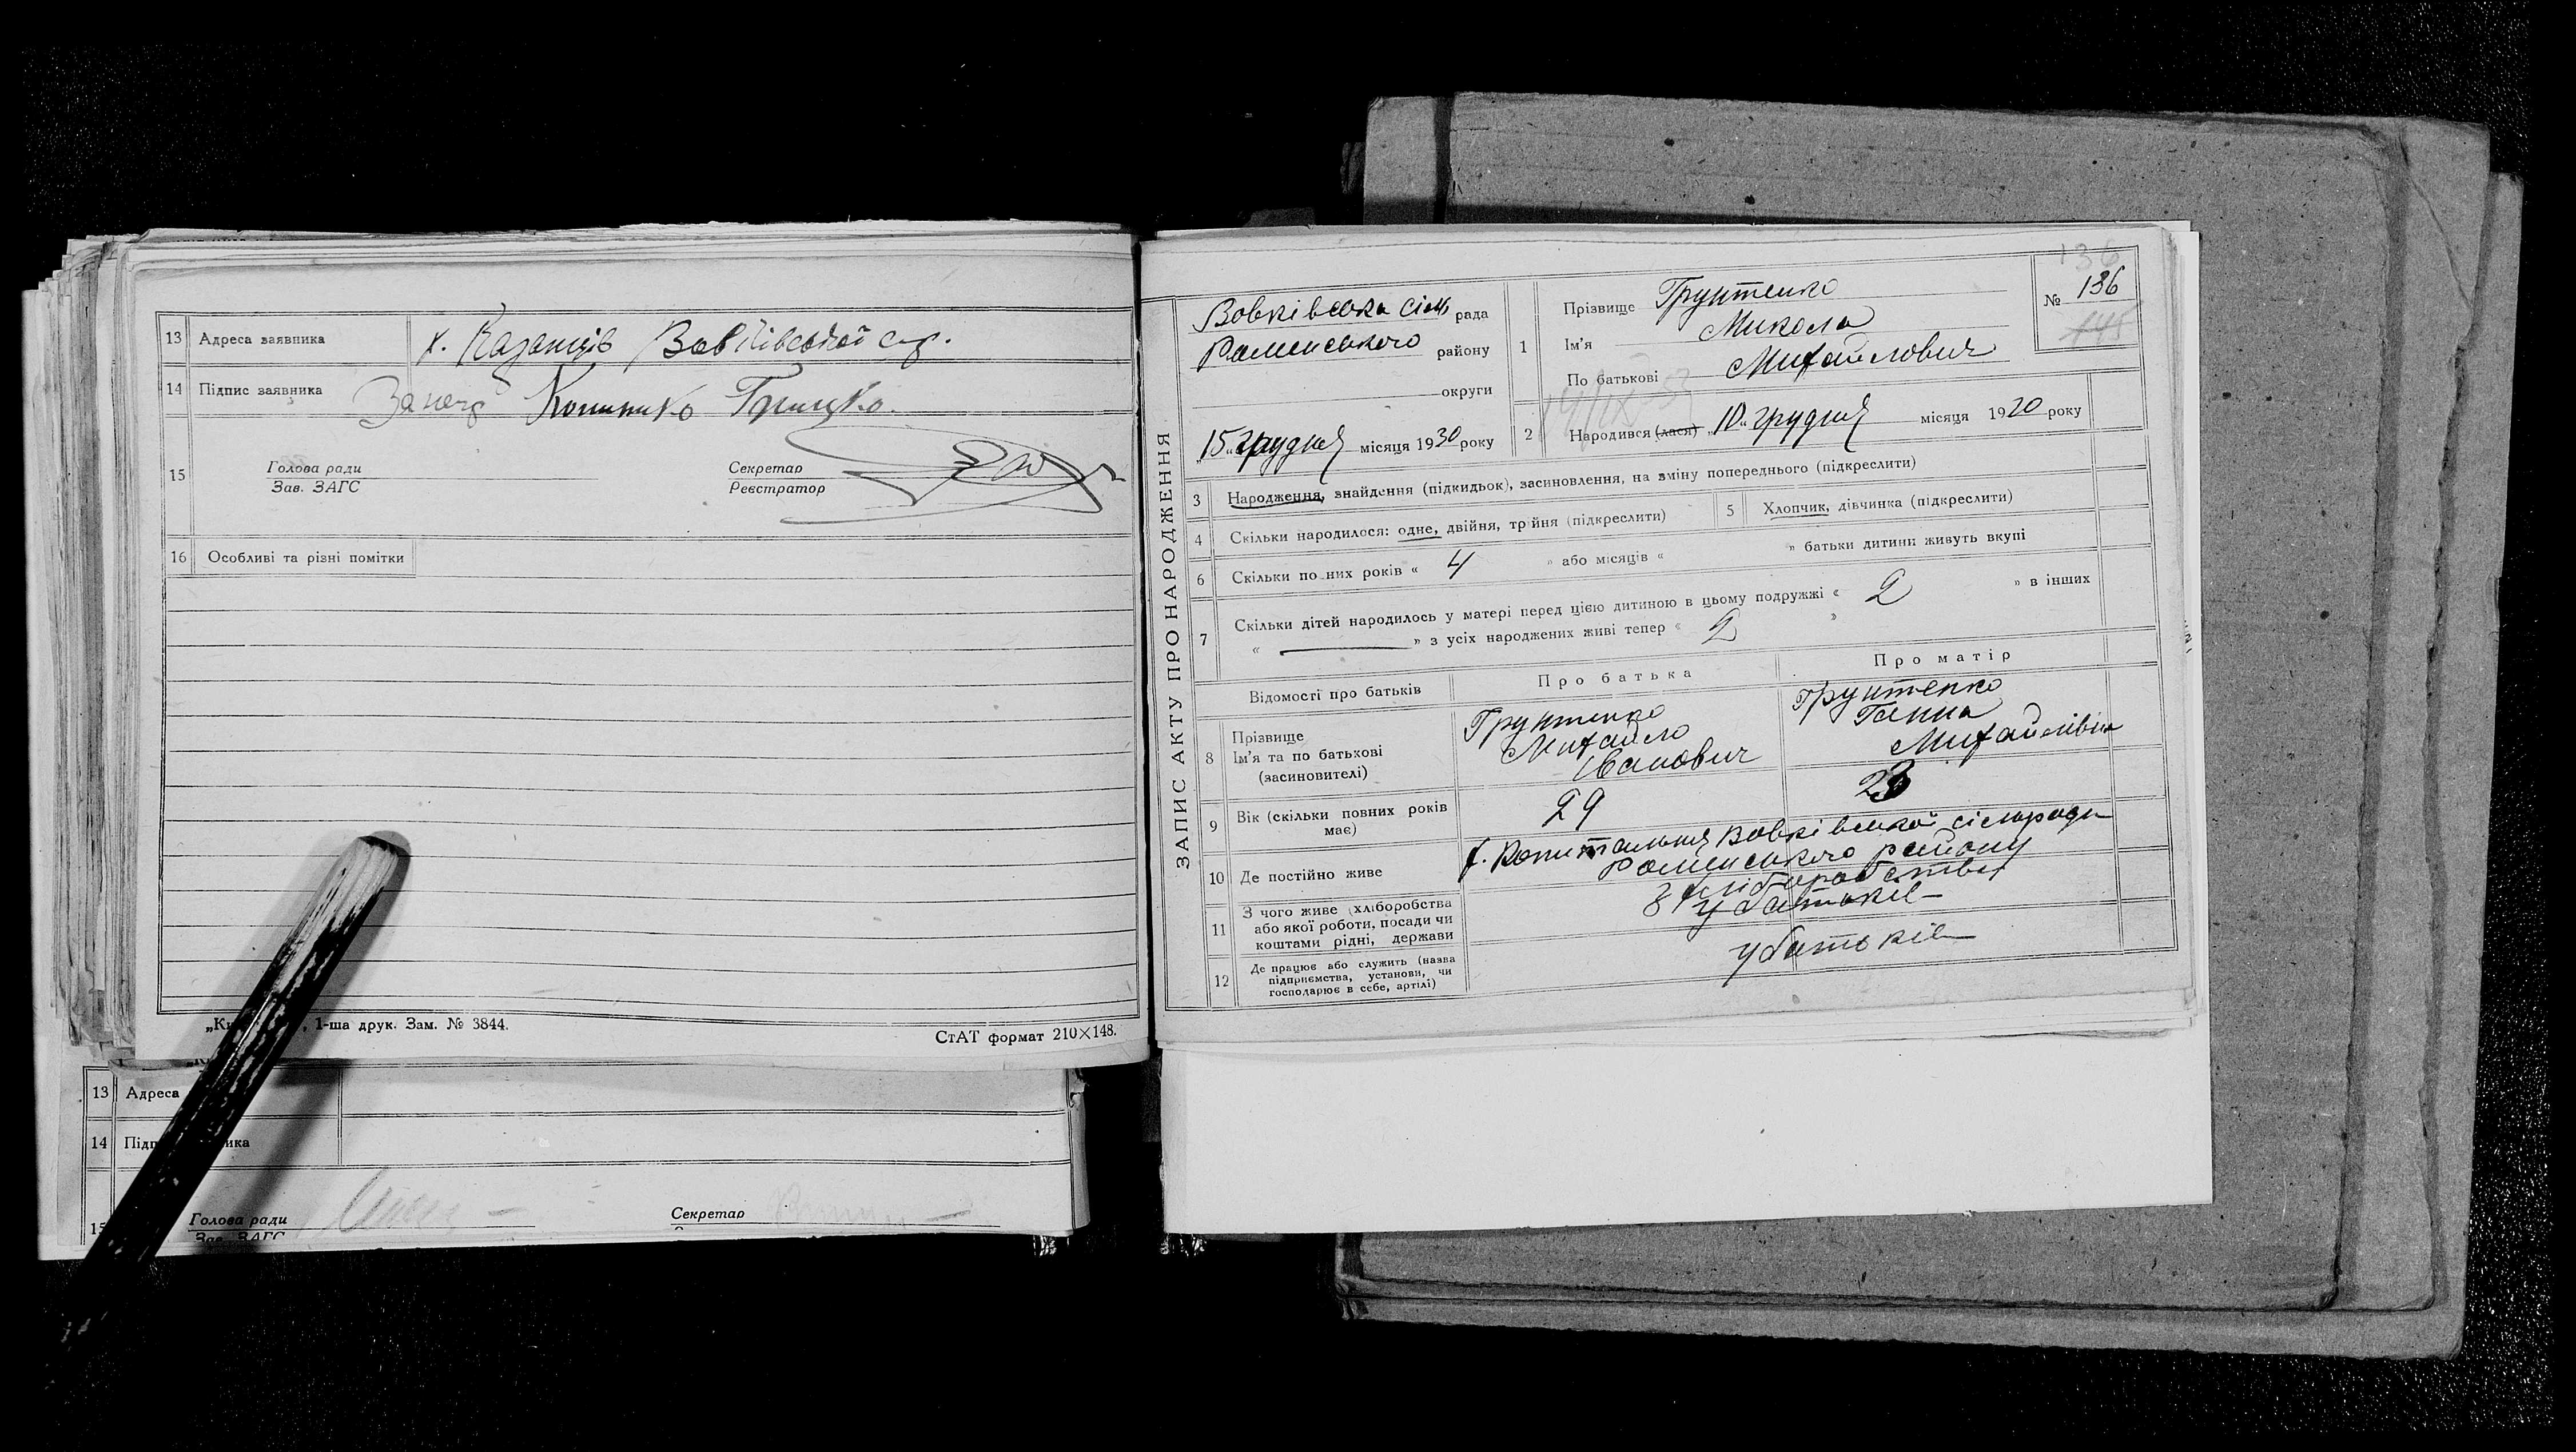 13 Адреса заявника х. Казанців Вовківської с.р.
14 Підпис заявника Копитко Грицко.
15 Голова ради
Зав. ЗАГС
Секретар
Реєстратор
16 Особливі та різні помітки
1-ша друк. Зам. № 3844.
СтАТ формат 210×148.
13 Адреса
14
Голова ради
Зав. ЗАГС
Секретар
ЗАПИС АКТУ ПРО НАРОДЖЕННЯ
Вовківська сіль рада
Роменського району
округи
"15" грудня місяця 1930 року
136
№ 136
1 Прізвище Грунтенко
Ім'я Микола
По батькові Михайлович
2 Народився (лася) "10" грудня місяця 1920 року
3 Народження, знайдення (підкидьок), засиновлення, на зміну попереднього (підкреслити)
4 Скільки народилося: одне, двійня, тройня (підкреслити)
5 Хлопчик, дівчинка (підкреслити)
6 Скільки повних років « 4 » або місяців « » батьки дитини живуть вкупі
7 Скільки дітей народилось у матері перед цією дитиною в цьому подружжі « 2 » в інших
« — » з усіх народжених живі тепер « 2 »
Відомості про батьків
Про батька
Про матір
8 Прізвище
Ім'я та по батькові
(засиновителі)
Грунтенко
Михайло
Іванович
Грунтенко
Ганна
Михайлівна
9 Вік (скільки повних років
має)
29
23
10 Де постійно живе
х. Копитальня Вовківської сільради
Роменського району
11 З чого живе (хліборобства
або якої роботи, посади чи
коштами рідні, держави
З хліборобства
у батьків
12 Де працює або служить (назва
підприємства, установи, чи
господарює в себе, артілі)
у батьків